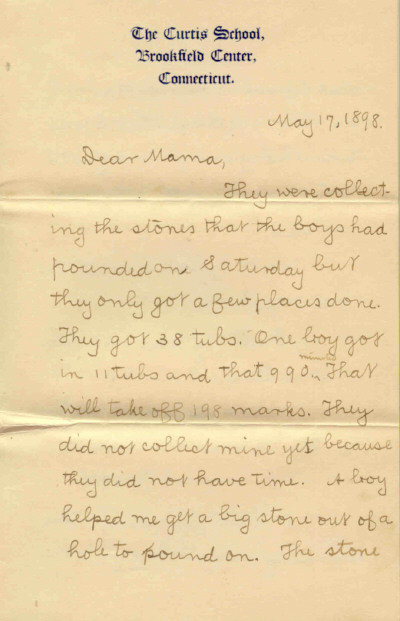 The Curtis School,
Brookfield Center,
Connecticut.
May 17, 1898.
Dear Mama,
They were collect-
ing the stones that the boys had
pounded on Saturday but
they only got a few places done.
They got 38 tubs. One boy got
in 11 tubs and that 990 minutes. That
will take off 198 marks. They
did not collect mine yet because
they did not have time. A boy
helped me get a big stone out of a
hole to pound on. The stone